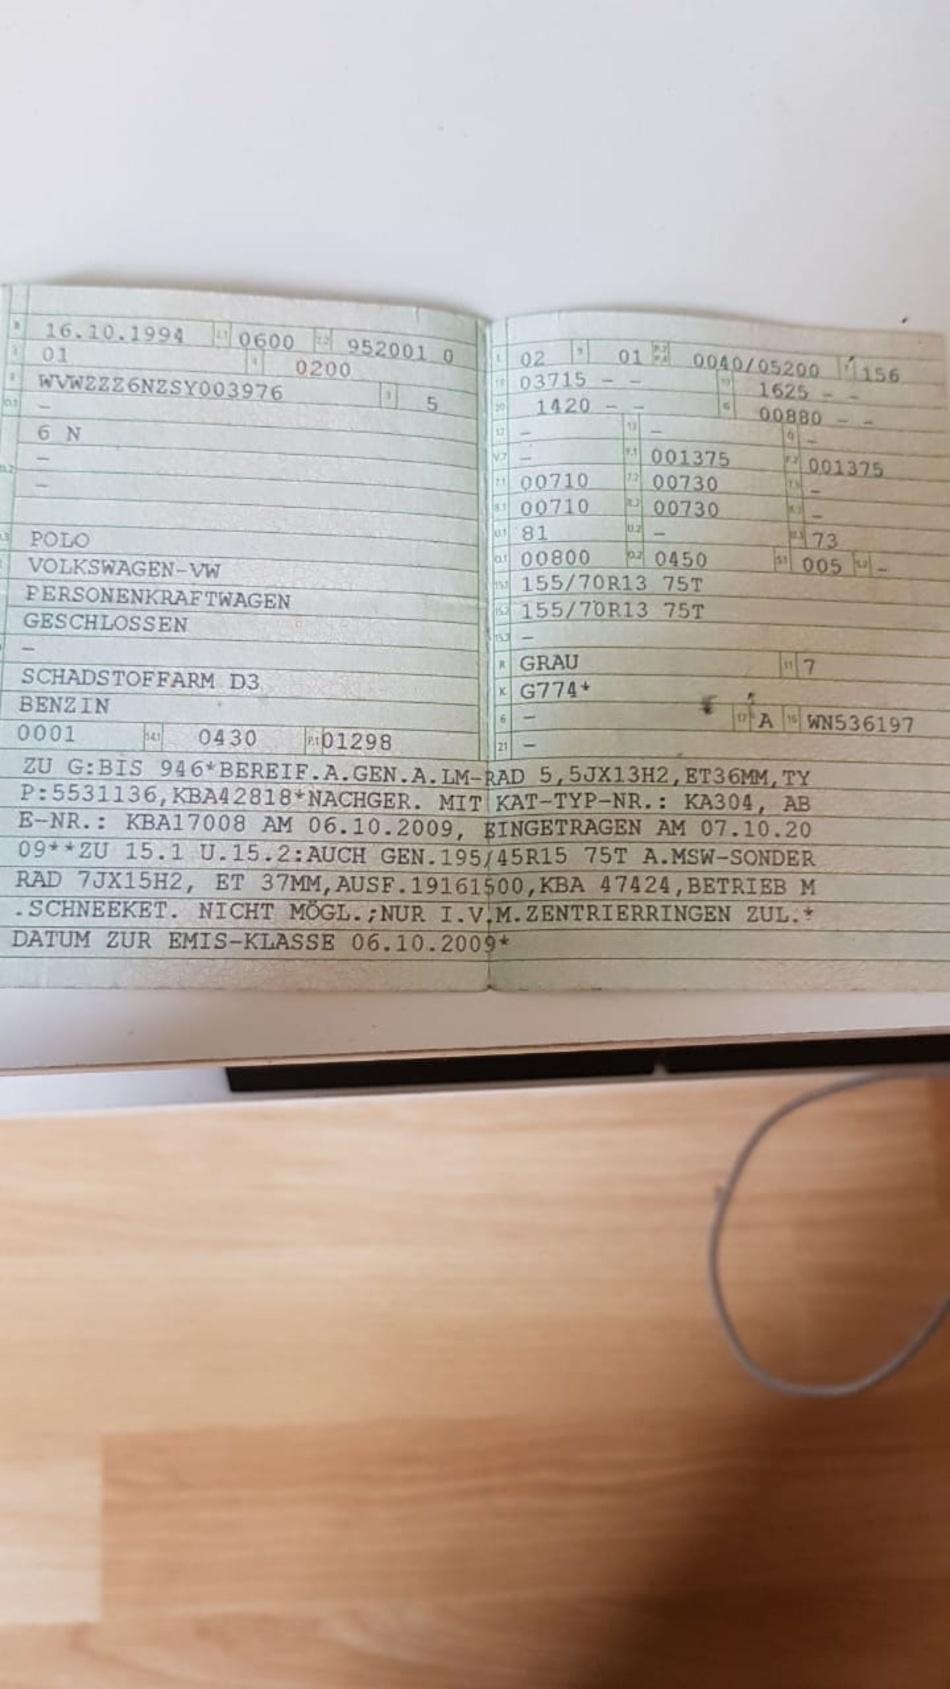 16.10.1994 0600 952001 0
01 0200
WVWZZZ6NZSY003976 5
–
6 N
–
–
POLO
VOLKSWAGEN-VW
PERSONENKRAFTWAGEN
GESCHLOSSEN
–
SCHADSTOFFARM D3
BENZIN
0001 0430 P.1 01298
02 01 0040/05200 156
03715 – – 1625 – –
1420 – – 00880 – –
– – –
– 001375 001375
00710 00730 –
00710 00730 –
81 – 73
00800 0450 005 –
155/70R13 75T
155/70R13 75T
–
R GRAU 11 7
K G774*
6 – 17 A 16 WN536197
21 –
ZU G:BIS 946*BEREIF.A.GEN.A.LM-RAD 5,5JX13H2,ET36MM,TY
P:5531136,KBA42818*NACHGER. MIT KAT-TYP-NR.: KA304, AB
E-NR.: KBA17008 AM 06.10.2009, EINGETRAGEN AM 07.10.20
09**ZU 15.1 U.15.2:AUCH GEN.195/45R15 75T A.MSW-SONDER
RAD 7JX15H2, ET 37MM,AUSF.19161500,KBA 47424,BETRIEB M
.SCHNEEKET. NICHT MÖGL.;NUR I.V.M.ZENTRIERRINGEN ZUL.*
DATUM ZUR EMIS-KLASSE 06.10.2009*